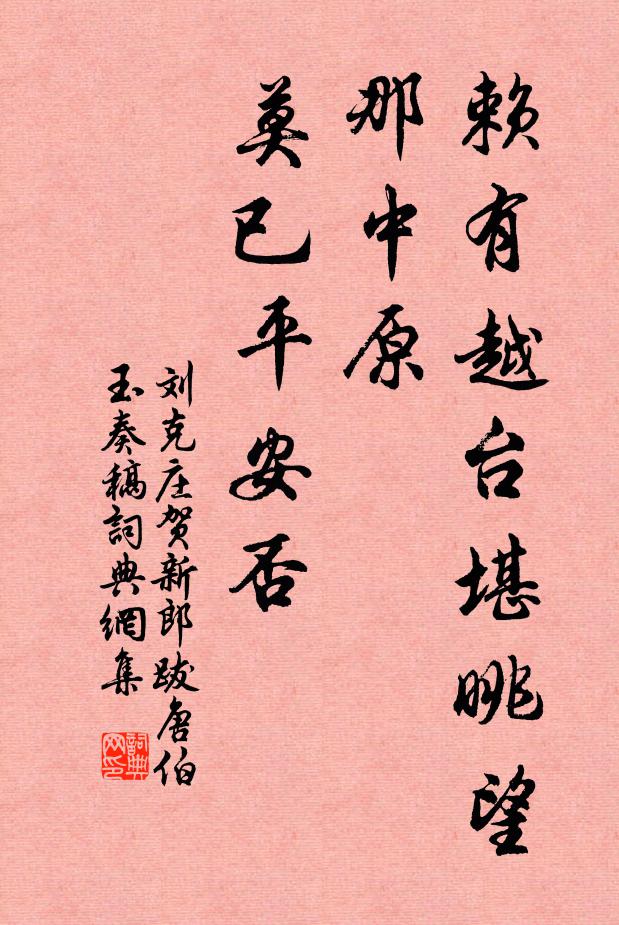 赖有越台堪眺望
那中原
莫已平安否
刘克庄贺新郎跋唐伯
玉奏稿詞典網集
詞典
网印